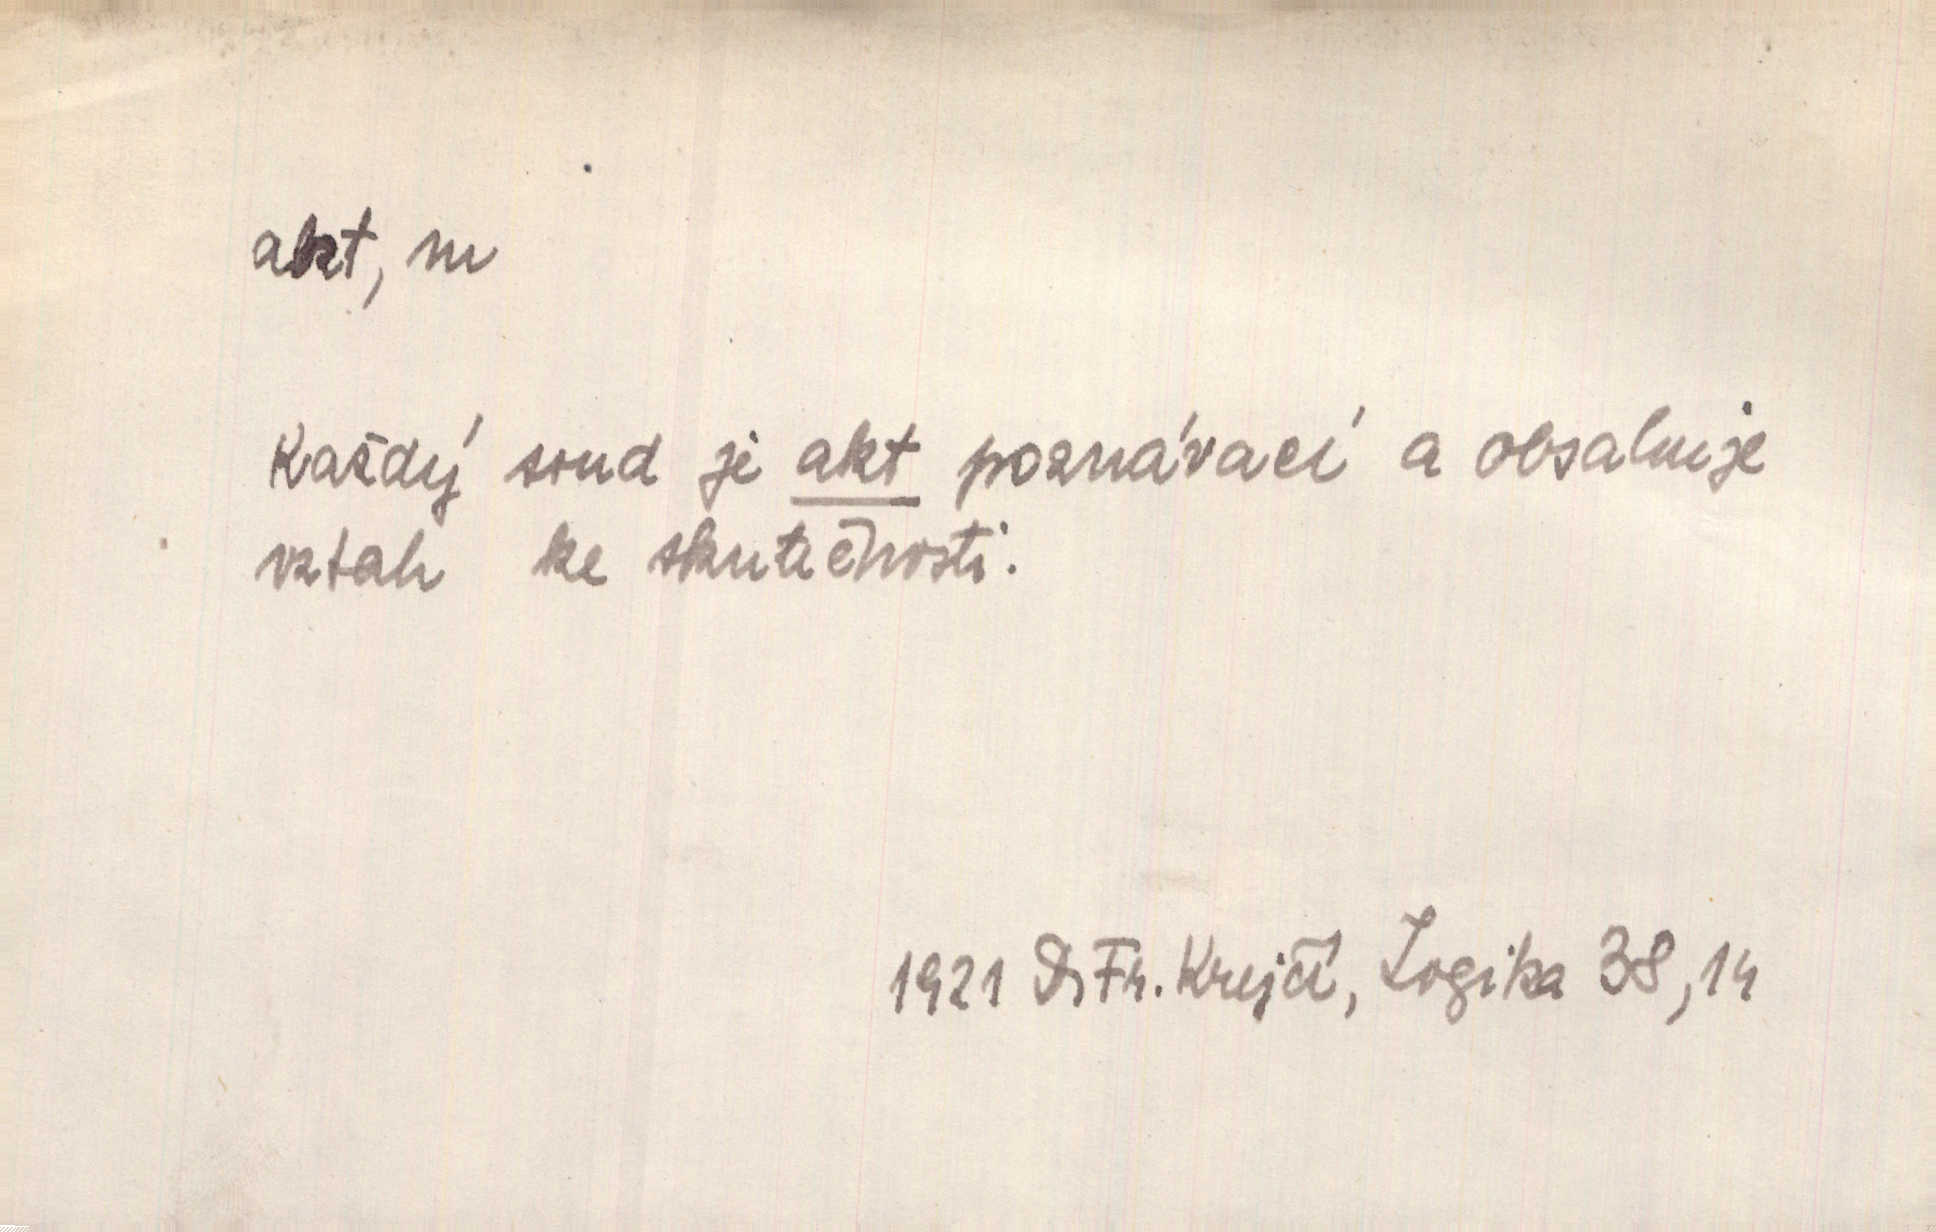 akt, m
Každý soud je akt poznávací a obsahuje
vztah ke skutečnosti.
1921 Dr Fr. Krejčí, Logika 38, 14